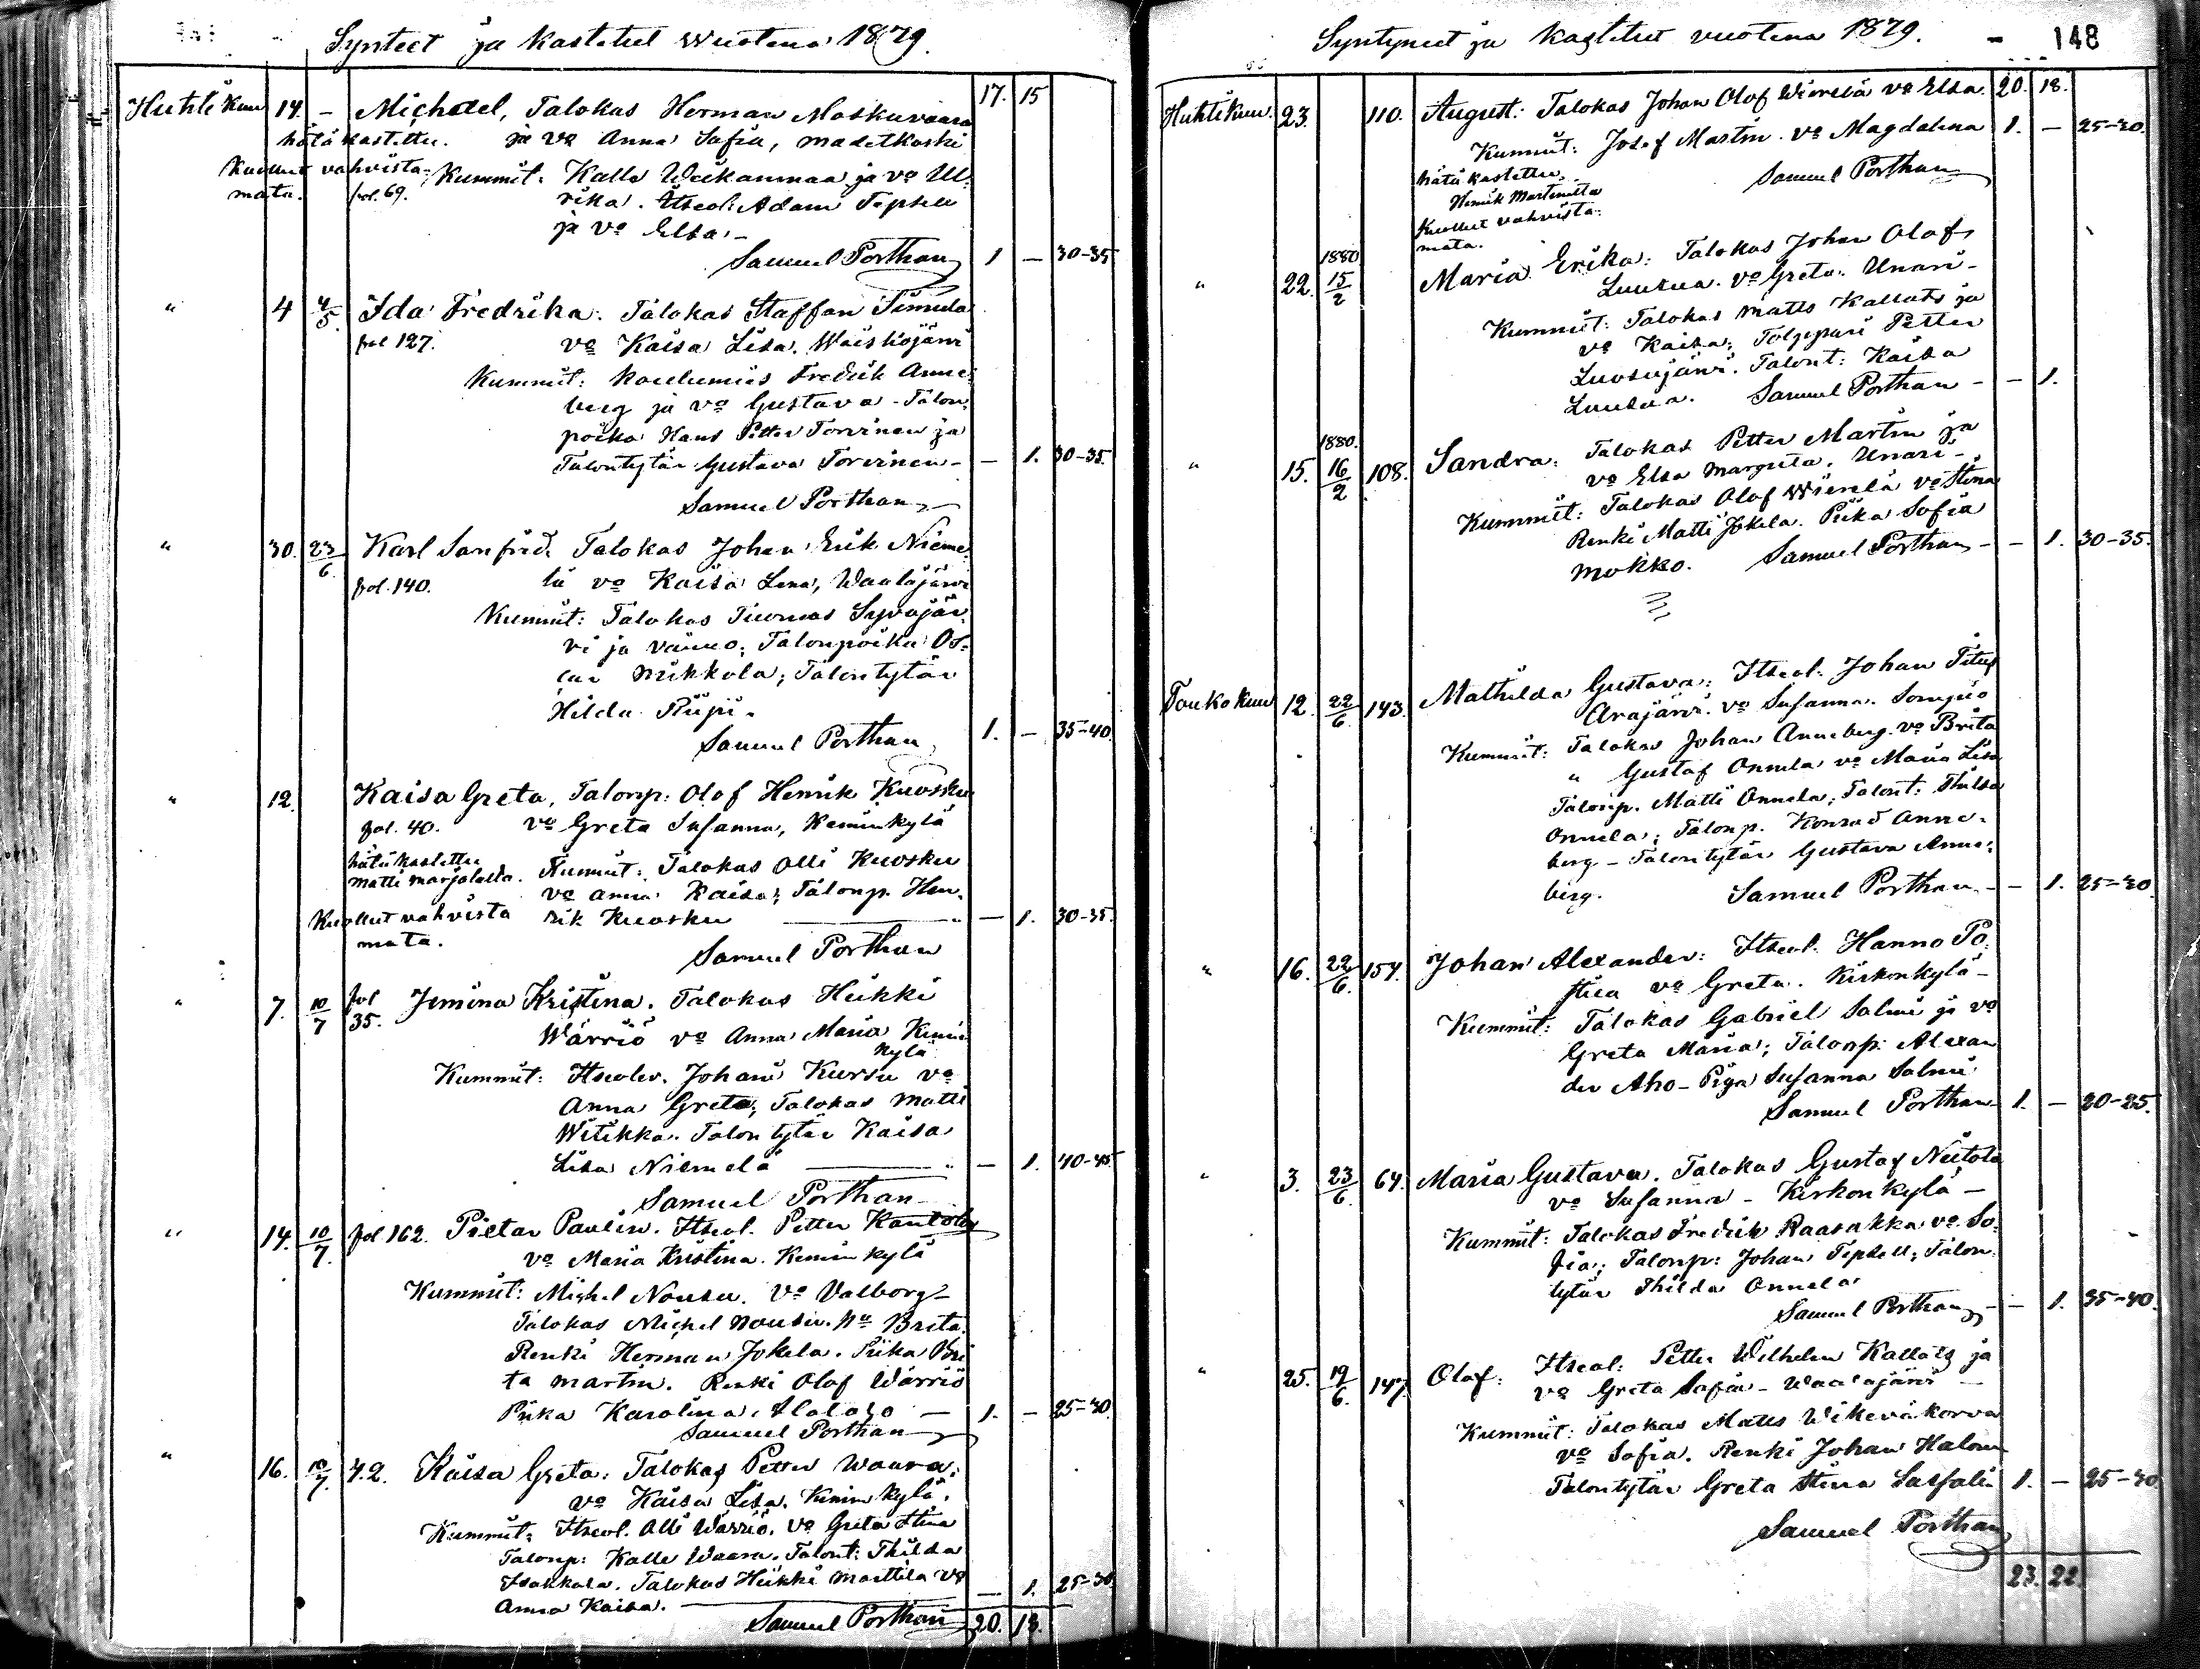 Synteet ja kastetut Wuotena 1879.
17. 15
Huhtikuu 14 - Michael, Talokas Herman Moskuvaara
hätä kastettu. ja vo Anna Sofia, Madetkoski
Kuollut vahvista- Kummit: Kalle Wiikanmaa ja vo Ul-
mata. fol. 69. rika. Itseol: Adam Tepsell
ja vo Elsa. -
Samuel Porthan 1 - 30-35
" 4 4/5 Ida Fredrika. Talokas Staffan Simula
fol 127. vo Kaisa Lisa. Waiskojärvi
Kummit: Koulumies Fredrik Anne-
berg ja vo Gustava - Talon-
poika Hans Petter Torvinen ja
Talontytär Gustava Torvinen - - 1. 30-35.
Samuel Porthan
" 30. 23/6 Karl Sanfrid. Talokas Johan Erik Nieme-
fol. 140. lä vo Kaisa Lena, Waalajärvi
Kummit: Talokas Tuomas Syväjär-
vi ja vaimo; Talonpoika Os-
car Mikkola; Talontytär
Hilda Piipi.
Samuel Porthan 1. - 35-40.
" 12. Kaisa Greta, Talonp: Olof Henrik Kuosku
fol. 40. vo Greta Susanna, Keminkylä
hätä kastettu
Matti Marjalalta. Kummit: Talokas Olli Kuosku
vo Anna Kaisa; Talonp. Hen-
Kuollut vahvista rik Kuosku " - 1. 30-35.
mata.
Samuel Porthan
" 7. 10/7 fol 35. Jemina Kristina. Talokas Heikki
Wärriö vo Anna Maria Kemin
kylä
Kummit: Itseolev. Johan Kursu vo
Anna Greta; Talokas Matti
Witikka. Talontytär Kaisa
Lisa Niemelä " - 1. 40-45
Samuel Porthan
" 14. 10/7. fol 162. Pietar Paulin. Itseol. Petter Kantola
vo Maria Kristina. Keminkylä
Kummit: Michel Nousu. vo Valborg -
Talokas Michel Nousu. vo Brita.
Renki Herman Jokela. Piika Bri
ta Martin. Renki Olof Wärriö
Piika Karolina Alatalo - 1. - 25-30.
Samuel Porthan
" 16. 10/7. 42. Kaisa Greta: Talokas Petter Waara.
vo Kaisa Lisa. Keminkylä.
Kummit: Itseol. Olli Wärriö. vo Greta Stina
Talonp: Kalle Waara. Talont: Thilda
Isakkala. Talokas Heikki Marttila vo
Anna Kaisa. - 1. 25-30
Samuel Porthan 20. 18.
Syntyneet ja kastetut vuotena 1879. - 148
Huhtikuu. 23. 110. August: Talokas Johan Olof Wierelä vo Elsa. 20. 18.
Kummit: Josef Martin. vo Magdalena 1. - 25-30.
hätä kastettu Samuel Porthan
Henrik Martinilta
Kuollut vahvista-
mata.
" 22. 1880 15/2 Maria Erika: Talokas Johan Olof
Luusua. vo Greta. Unari -
Kummit: Talokas Matts Kallatz ja
vo Kaisa; Tolppari Petter
Luosujärvi. Talont: Kaisa
Luusua. Samuel Porthan - - 1.
" 15. 1880. 16/2 108. Sandra: Talokas Petter Martin ja
vo Elsa Margreta. Unari -
Kummit: Talokas Olof Wierelä vo Stina
Renki Matti Jokela. Piika Sofia
Mokko. Samuel Porthan - - 1. 30-35.
Toukokuu 12. 22/6. 143. Mathilda Gustava: Itseol. Johan Titus
Arajärvi. vo Susanna. Sompio
Kummit: Talokas Johan Anneberg. vo Brita
" Gustaf Onnela vo Maria Lisa
Talonp. Matti Onnela; Talont: Thilda
Onnela; Talonp. Konrad Anne-
berg - Talontytär Gustava Anne-
berg. Samuel Porthan. - - 1. 25-30.
" 16. 22/6. 154. Johan Alexander: Itseol. Hanno Po-
stila vo Greta. Kirkonkylä -
Kummit: Talokas Gabriel Salmi ja vo
Greta Maria; Talonp: Alexan
der Aho - Piga Susanna Salmi
Samuel Porthan 1. - 20-25.
" 3. 23/6 64. Maria Gustava. Talokas Gustaf Neitola
vo Susanna - Kirkonkylä -
Kummit: Talokas Fredrik Raasakka vo So-
fia; Talonp: Johan Tepsell; Talon-
tytär Thilda Onnela
Samuel Porthan - - 1. 35-40.
" 25. 19/6. 147. Olof: Itseol: Petter Wilhelm Kallatz ja
vo Greta Sofia - Waalajärvi -
Kummit: Talokas Matts Wikeväkorva
vo Sofia. Renki Johan Halonen
Talontytär Greta Stina Sassali 1. - 25-30
Samuel Porthan
23. 22.